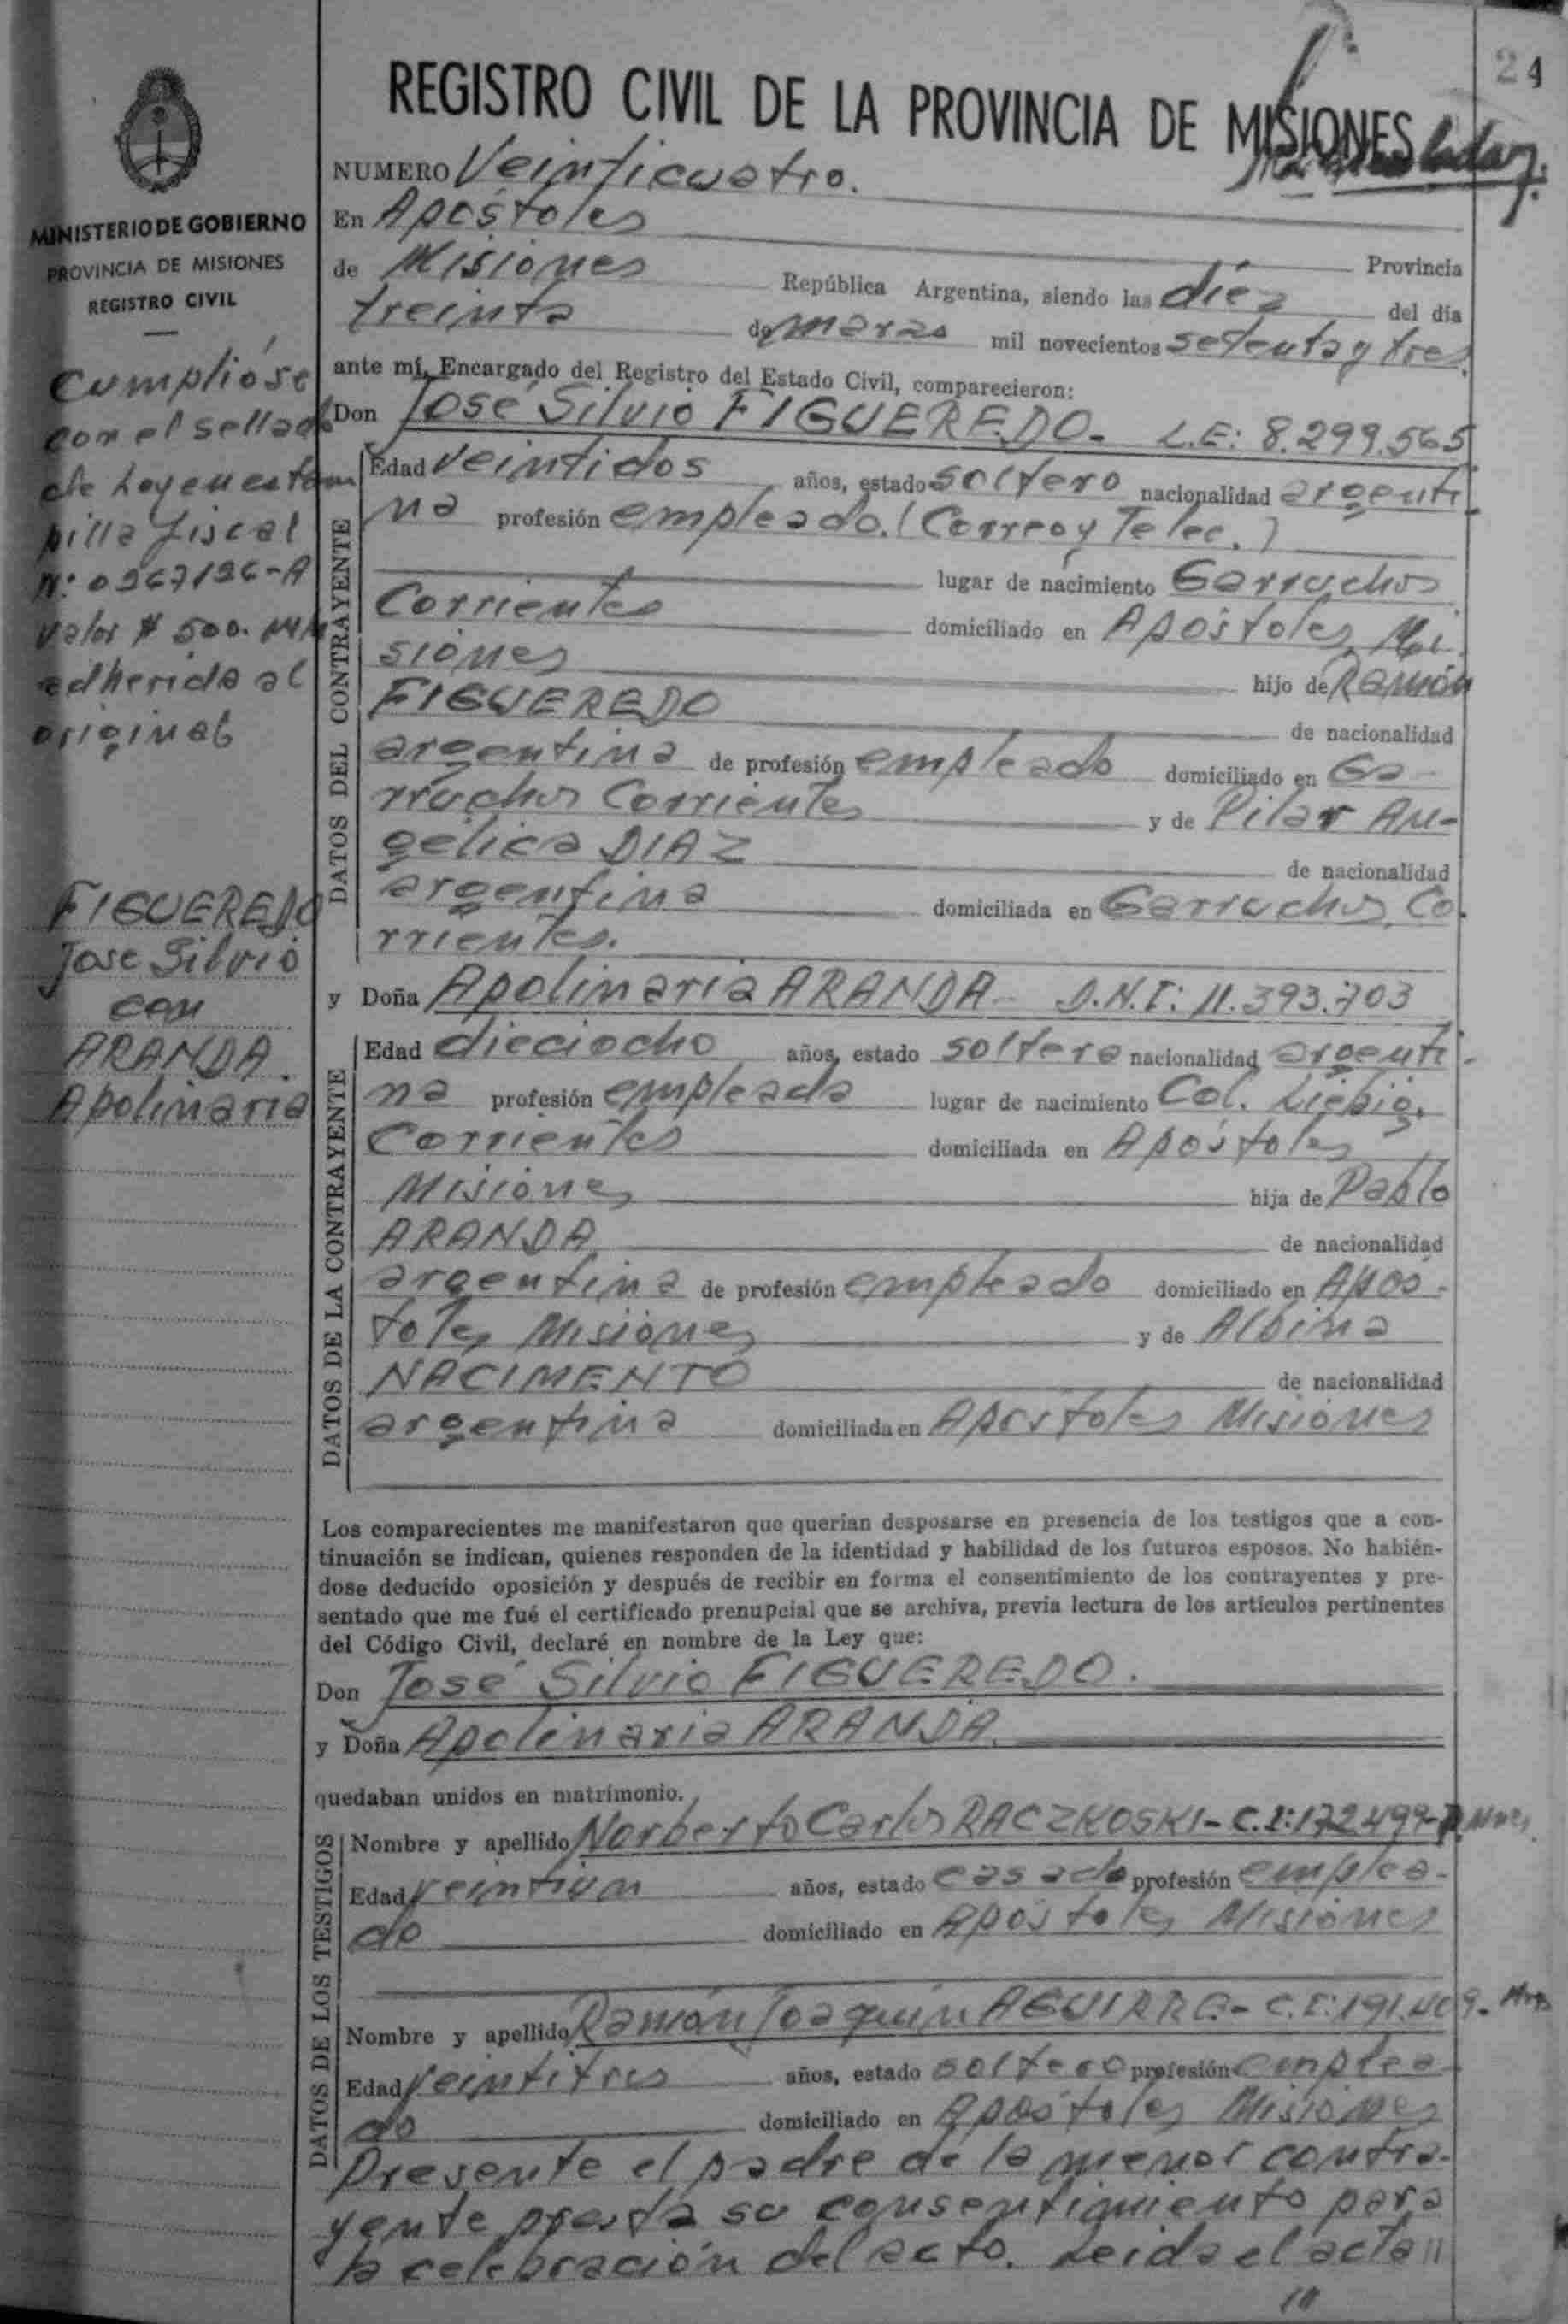 24
REGISTRO CIVIL DE LA PROVINCIA DE MISIONES
MINISTERIO DE GOBIERNO
PROVINCIA DE MISIONES
REGISTRO CIVIL
Cumplióse
con el sellado
de ley en estam
pilla fiscal
Nº 0967196-A
valor $ 500. M/N
adherida al
original
FIGUEREDO
José Silvio
con
ARANDA
Apolinaria
NUMERO Veinticuatro.
En Apóstoles Provincia
de Misiones República Argentina, siendo las diez del día
treinta de marzo mil novecientos setenta y tres
ante mí, Encargado del Registro del Estado Civil, comparecieron:
Don José Silvio FIGUEREDO- L.E: 8.299.565
DATOS DEL CONTRAYENTE
Edad veintidos años, estado soltero nacionalidad argenti
na profesión empleado. (Correo y Telec.)
lugar de nacimiento Garruchos
Corrientes domiciliado en Apóstoles, Mi
siones hijo de Ramón
FIGUEREDO de nacionalidad
argentina de profesión empleado domiciliado en Ga-
rruchos Corrientes y de Pilar An-
gélica DIAZ de nacionalidad
argentina domiciliada en Garruchos, Co.
rrientes.
y Doña Apolinaria ARANDA- D.N.I: 11.393.703
DATOS DE LA CONTRAYENTE
Edad dieciocho años, estado soltera nacionalidad argenti-
na profesión empleada lugar de nacimiento Col. Liebig,
Corrientes domiciliada en Apóstoles
Misiones hija de Pablo
ARANDA de nacionalidad
argentina de profesión empleado domiciliado en Após-
toles Misiones y de Albina
NACIMENTO de nacionalidad
argentina domiciliada en Apóstoles Misiones
Los comparecientes me manifestaron que querían desposarse en presencia de los testigos que a con-
tinuación se indican, quienes responden de la identidad y habilidad de los futuros esposos. No habién-
dose deducido oposición y después de recibir en forma el consentimiento de los contrayentes y pre-
sentado que me fué el certificado prenupcial que se archiva, previa lectura de los artículos pertinentes
del Código Civil, declaré en nombre de la Ley que:
Don José Silvio FIGUEREDO.
y Doña Apolinaria ARANDA.
quedaban unidos en matrimonio.
DATOS DE LOS TESTIGOS
Nombre y apellido Norberto Carlos RACZKOSKI- C.I: 172.499-P. Mnes.
Edad veintiun años, estado casado profesión emplea-
do domiciliado en Apóstoles Misiones
Nombre y apellido Ramón Joaquín AGUIRRE- C.I: 191.409- Mnes
Edad veintitres años, estado soltero profesión emplea-
do domiciliado en Apóstoles Misiones
Presente el padre de la menor contra-
yente presta su consentimiento para
la celebración del acto. Leida el acta //
//